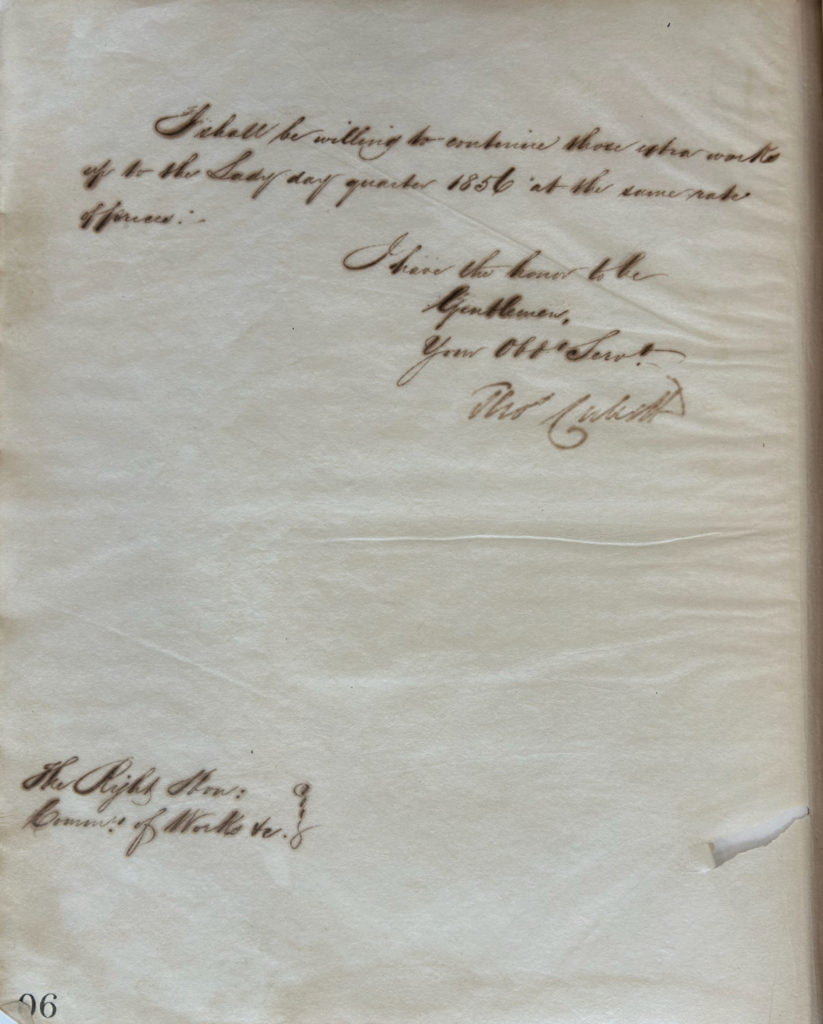 I shall be willing to continue those extra works
up to the Lady day quarter 1856 at the same rate
of prices.
I have the honor to be
Gentlemen,
Your Obdt Servt
Thos Cubitt
The Right Hon:
Commrs of Works &c.
96